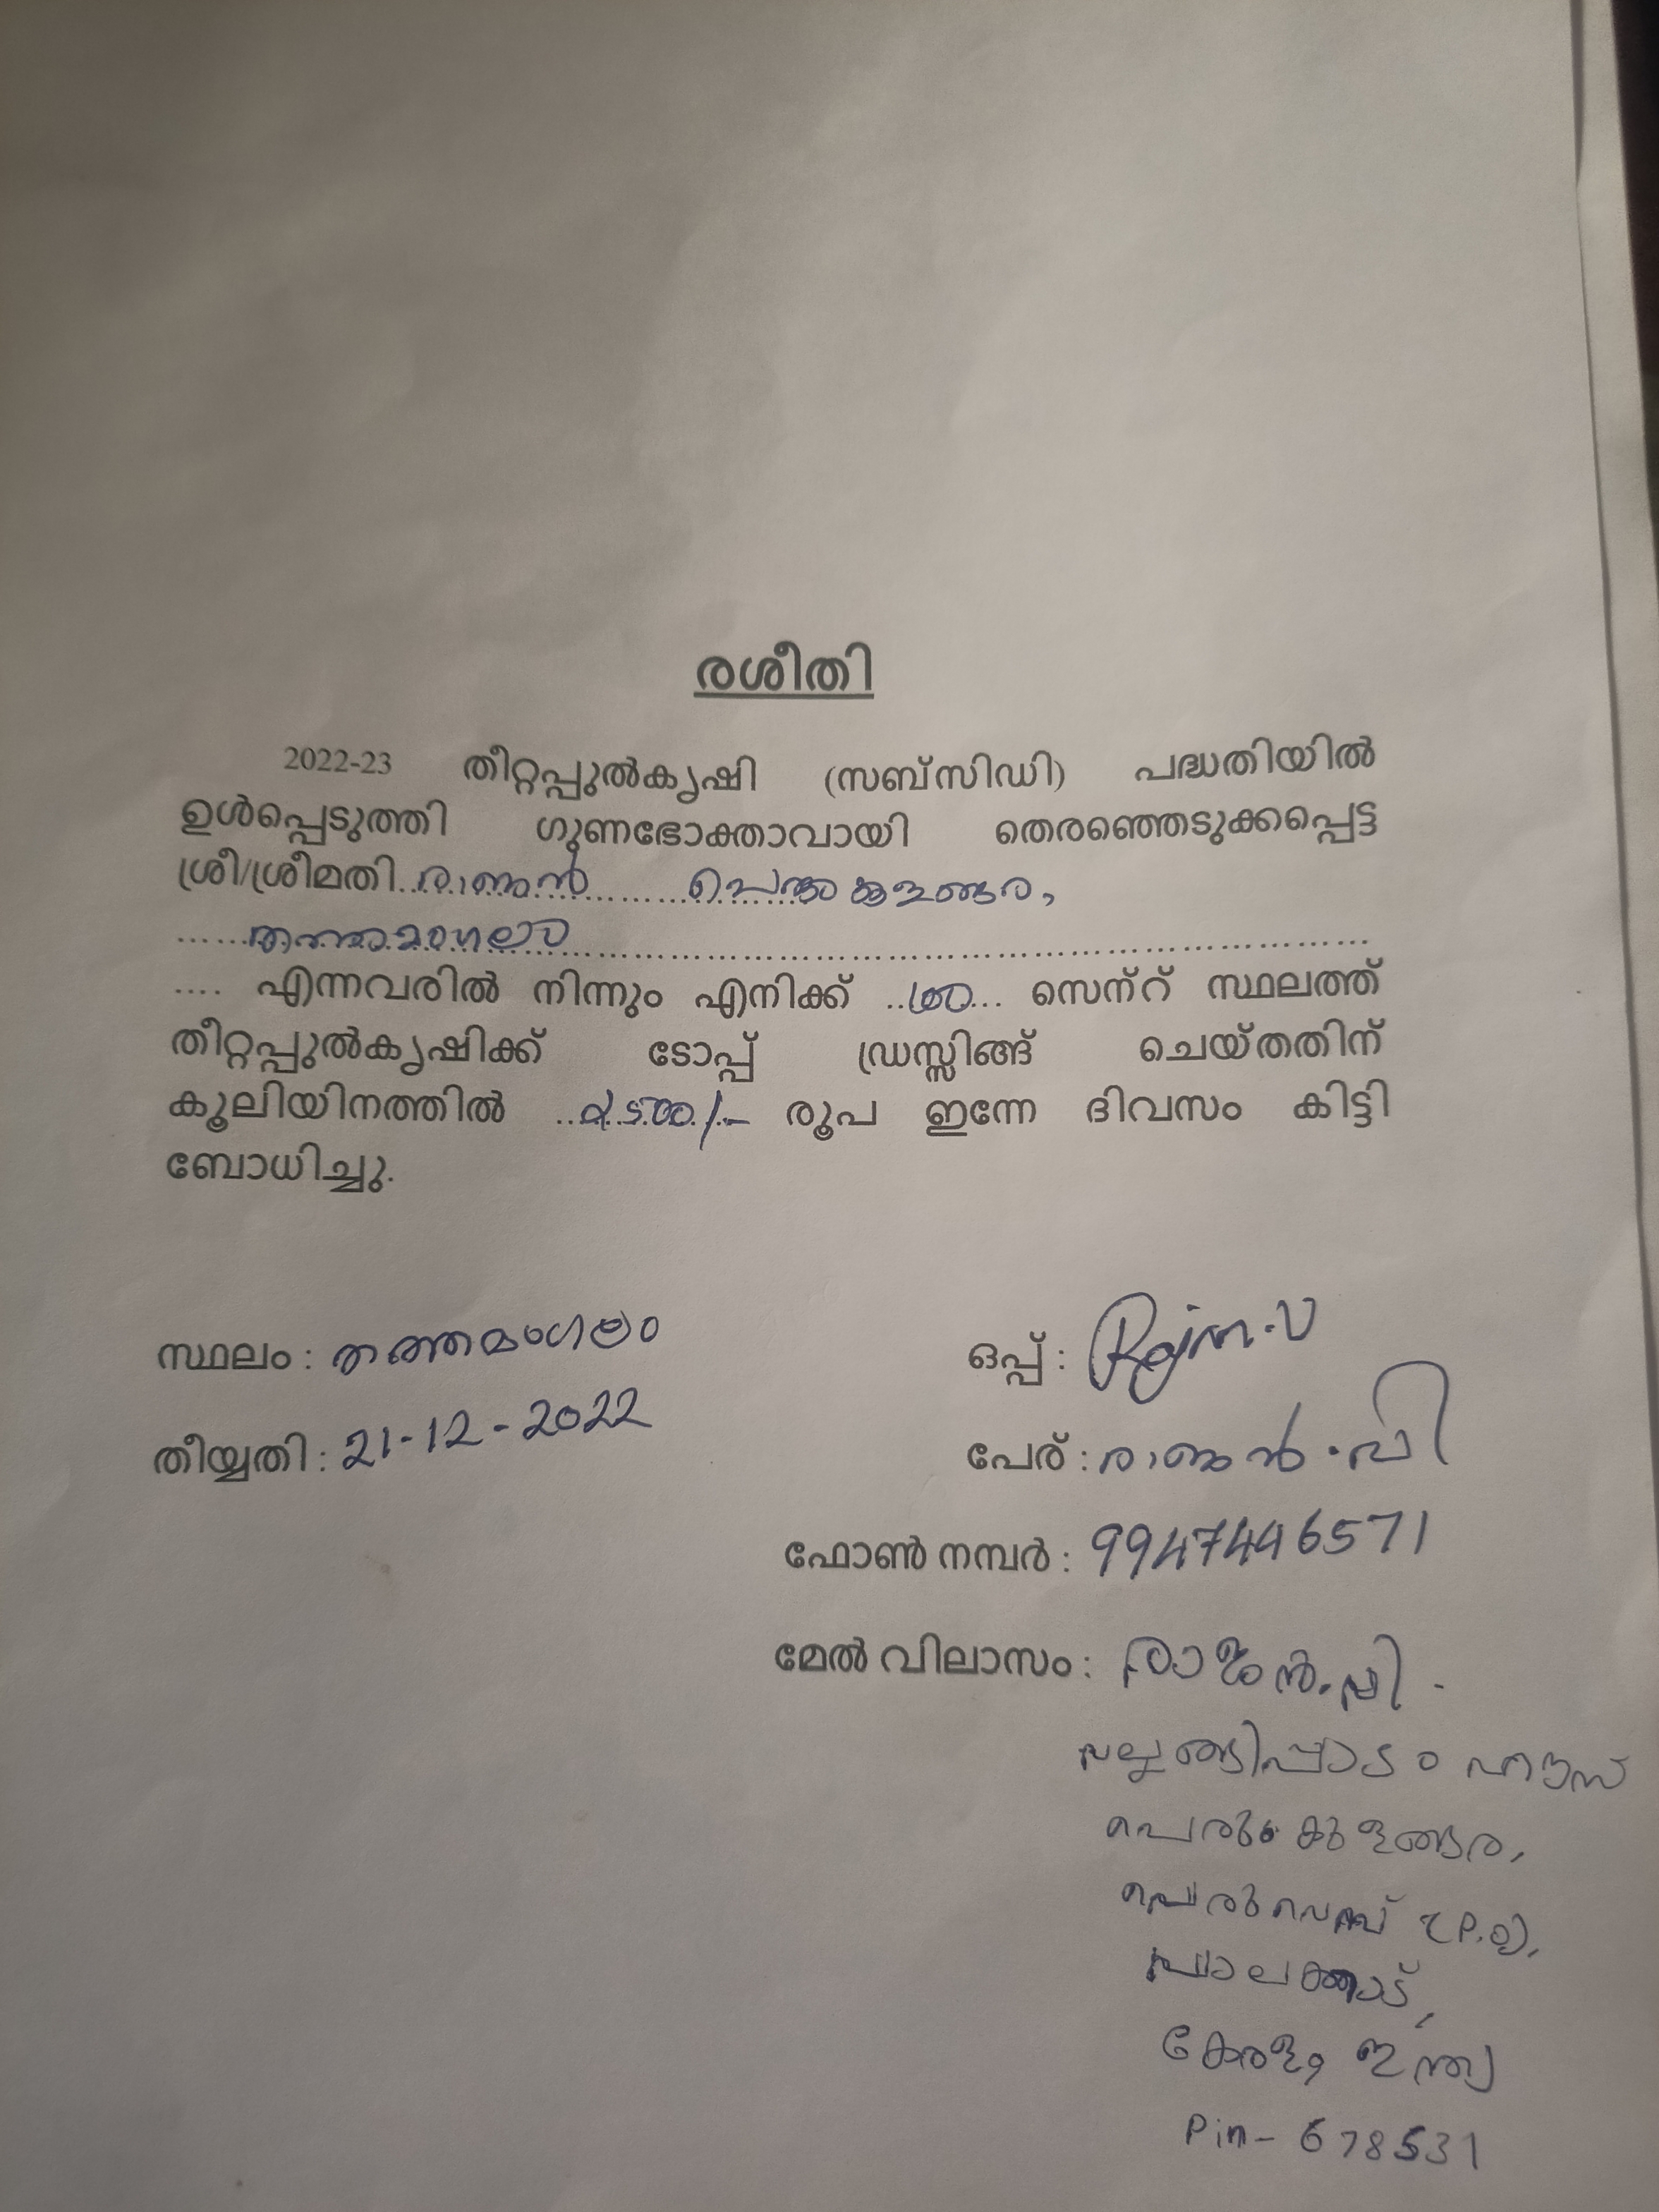 രശീതി
2022-23 തീറ്റപ്പുൽകൃഷി (സബ്സിഡി) പദ്ധതിയിൽ
ഉൾപ്പെടുത്തി ഗുണഭോക്താവായി തെരഞ്ഞെടുക്കപ്പെട്ട
ശ്രീ/ശ്രീമതി..രാജൻ.......പെരുംകുളങ്ങര,
......തത്തമംഗലം......
.... എന്നവരിൽ നിന്നും എനിക്ക് ..100... സെന്റ് സ്ഥലത്ത്
തീറ്റപ്പുൽകൃഷിക്ക് ടോപ്പ് ഡ്രസ്സിങ്ങ് ചെയ്തതിന്
കൂലിയിനത്തിൽ രൂപ ഇന്നേ ദിവസം കിട്ടി
ബോധിച്ചു.
സ്ഥലം : തത്തമംഗലം
ഒപ്പ് : Rajan.V
തീയ്യതി : 21-12-2022
പേര് : രാജൻ.വി
ഫോൺ നമ്പർ : 9947446571
മേൽ വിലാസം : രാജൻ.വി.
ഹൗസ്
പെരുംകുളങ്ങര,
പെരുവെമ്പ് (P.O),
പാലക്കാട്,
കേരളം, ഇന്ത്യ
Pin- 678531